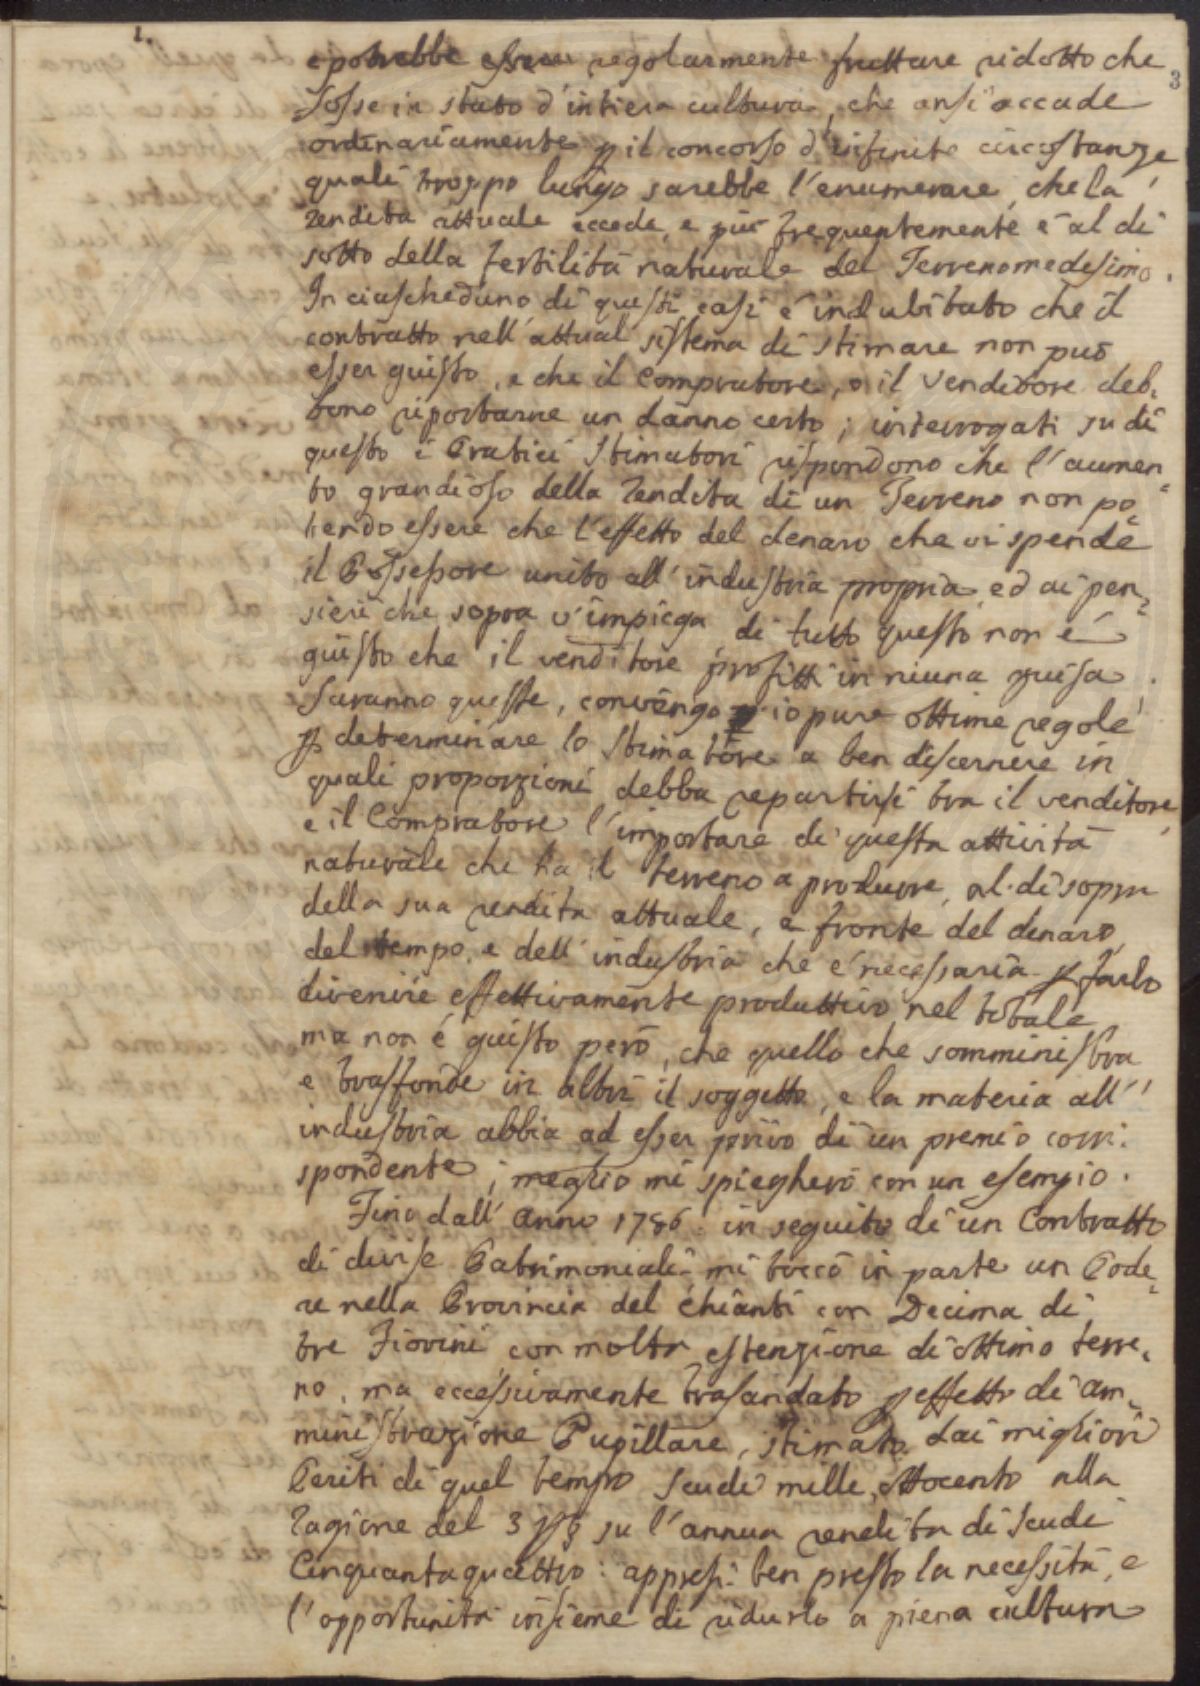 1.
3
e potrebbe essere regolarmente fruttare ridotto che
fosse in stato d'intiera cultura, che ansi accade
ordinariamente p il concorso d'infinite circostanze,
quali troppo lungo sarebbe l'enumerare, che la
rendita attuale eccede, e più frequentemente è al di
sotto della fertilità naturale del Terreno medesimo.
In ciascheduno di questi casi è indubitato che il
contratto nell'attual sistema di stimare non può
esser guisto, e che il Compratore, o il Venditore deb,
bono riportarne un danno certo; interrogati su di
questo i Pratici Stimatori rispondono che l'aumen=
to grandioso della Rendita di un Terreno non po=
tendo essere che l'effetto del denaro che vi spende
il Possessore unito all'industria propria, ed ai pen=
sieri che sopra v'impiega di tutto questo non é
guisto che il venditore profitti in niuna guisa.
Saranno queste, convengo io pure ottime regole
p determinare lo Stimatore a ben discernere in
quali proporzioni debba repartirsi tra il venditore,
e il Compratore l'importare di questa attività
naturale che ha il terreno a produrre, al di sopra
della sua rendita attuale, a fronte del denaro,
del tempo, e dell'industria che é necessaria p farlo
divenire effettivamente produttivo nel totale,
ma non é guisto però, che quello che somministra
e trasfonde in altri il soggetto, e la materia all'
industria abbia ad esser privo di un premio corri:
spondente; meglio mi spiegherò con un esempio.
Fino dall'Anno 1786. in seguito di un Contratto
di divise Patrimoniali mi toccò in parte un Pode=
re nella Provincia del Chianti con Decima di
tre Fiorini con molta estenzione di ottimo terre,
no, ma eccessivamente trasandato p effetto di am,
ministrazione Pupillare, stimato dai migliori
Periti di quel tempo Scudi mille ottocento alla
ragione del 3 p% su l'annua rendita di Scudi
Cinquantaquattro: appresi ben presto la necessità, e
l'opportunità insieme di ridurlo a piena cultura